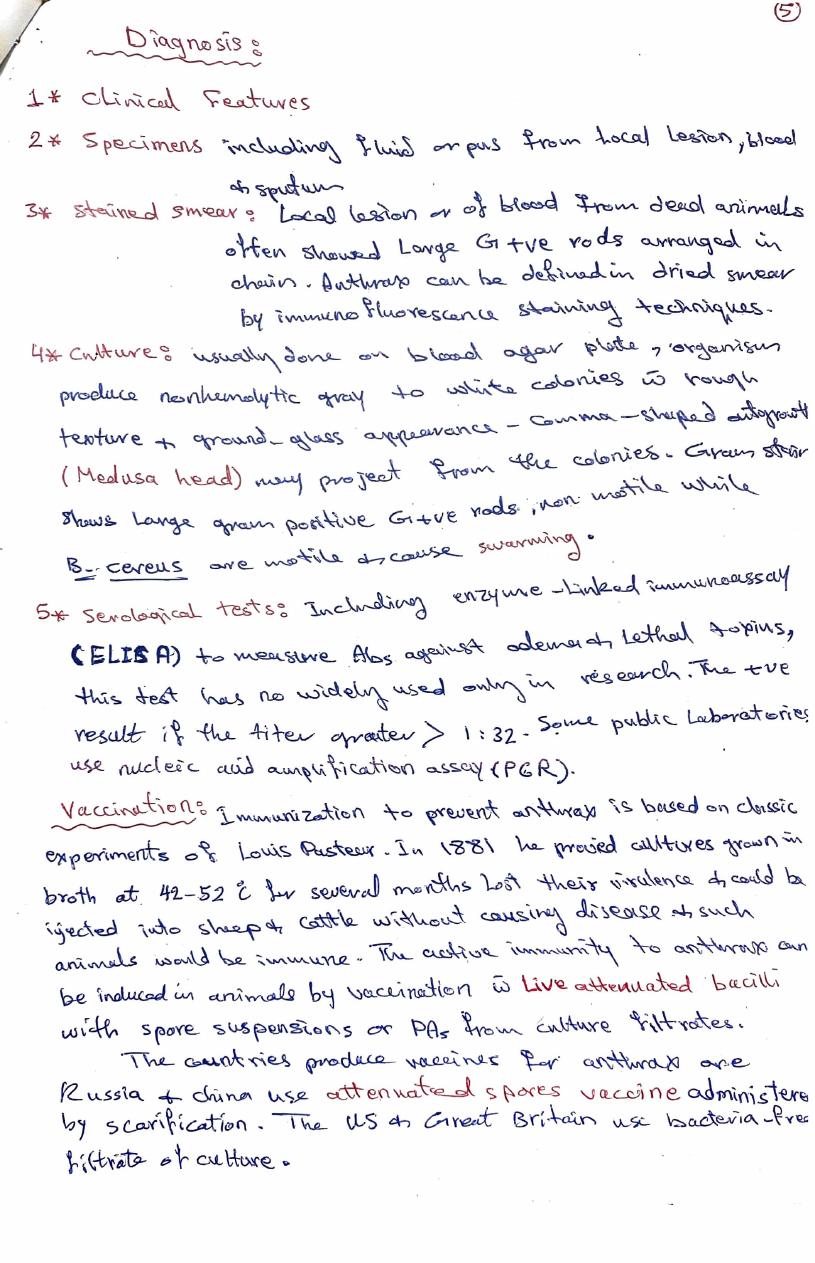 5
Diagnosis:
1* Clinical Features
2* Specimens including fluid or pus from local lesion, blood
& sputum
3* Stained smear: Local lesion or of blood from dead animals
often showed Large G+ve rods arranged in
chain. Anthrax can be defined in dried smear
by immunofluorescence staining techniques.
4* Culture: usually done on blood agar plate, organism
produce nonhemolytic gray to white colonies w̄ rough
texture & ground-glass appearance - Comma-shaped outgrowt
(Medusa head) may project from the colonies. Gram stain
shows Large gram positive G+ve rods, non motile while
B. cereus are motile & cause swarming.
5* Serological tests: Including enzyme-Linked immunoassay
(ELISA) to measure Abs against odema & Lethal toxins,
this test has no widely used only in research. The +ve
result if the titer greater > 1:32. Some public Laboratories
use nucleic acid amplification assay (PCR).
Vaccination: Immunization to prevent anthrax is based on classic
experiments of Louis Pasteur. In 1881 he proved cultures grown in
broth at 42-52 c̊ for several months Lost their virulence & could be
injected into sheep & cattle without causing disease & such
animals would be immune. The active immunity to anthrax can
be induced in animals by vaccination w̄ Live attenuated bacilli
with spore suspensions or PAs from culture filtrates.
The countries produce vaccines for anthrax are
Russia & china use attenuated spores vaccine administere
by scarification. The US & Great Britain use bacteria-free
filtrate of culture.